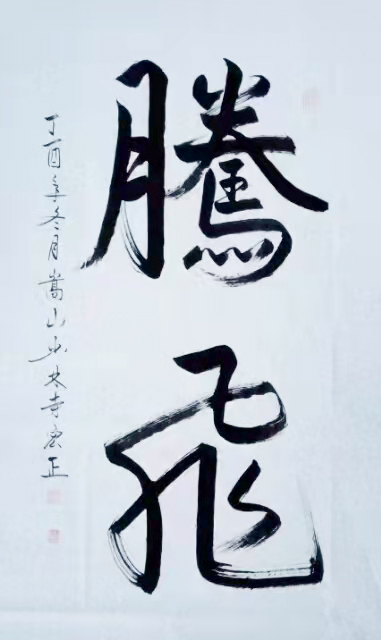 騰飛
丁酉年冬月嵩山少林寺唐正